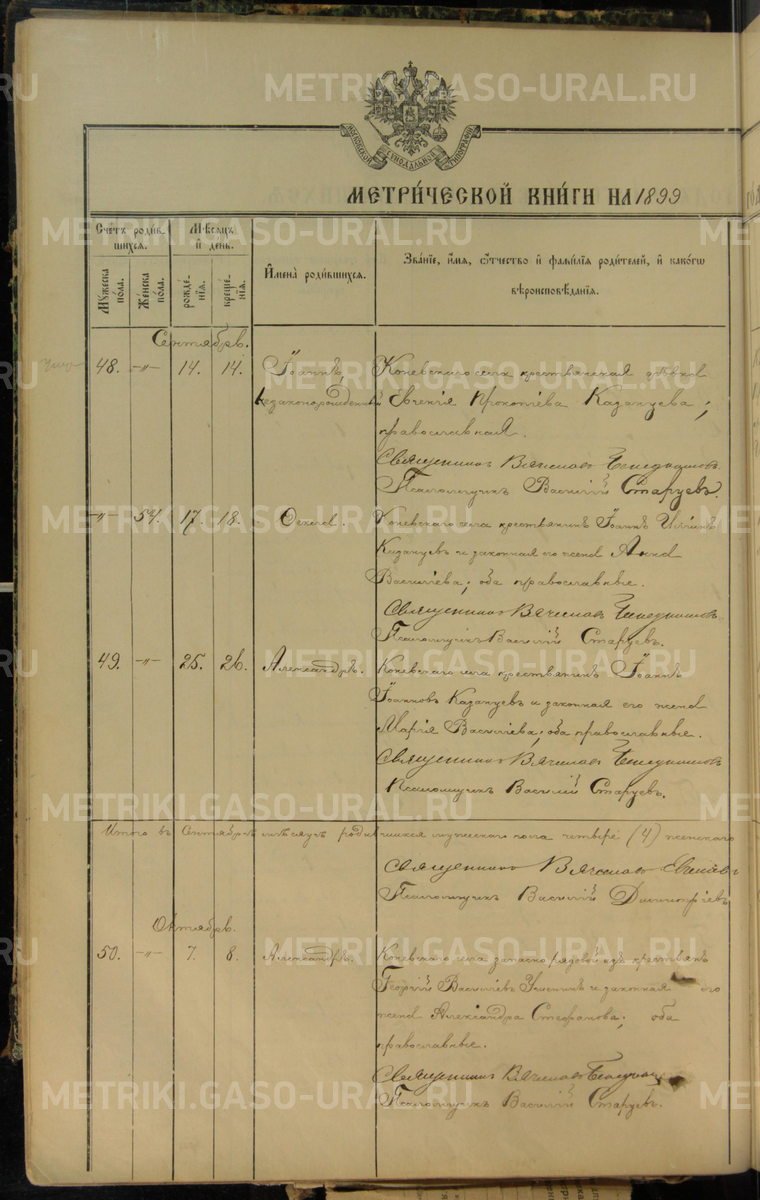 METRIKI.GASO-URAL.RU
МОСКОВСКОЙ СѴНОДАЛЬНОЙ ТИПОГРАФІИ
МЕТРИ́ЧЕСКОЙ КНИ́ГИ НА 1899
Сче́тъ роди́вшихся.
Мѣ́сяцъ и҆ де́нь.
И҆мена̀ роди́вшихся.
Зва́нїе, и҆́мя, ѻ҆́тчество и҆ фами́лїя роди́телей, и҆ како́гѡ вѣроисповѣ́данїя.
Мꙋ́жеска по́ла.
Же́нска по́ла.
рожде́нїя.
креще́нїя.
Сентябрь.
48. -"- 14. 14. Іоаннъ, Коневскаго села крестьянская дѣвка
незаконорожденный Евгенія Прокопіева Казанцева;
православная.
Священникъ Вячеславъ
Псаломщикъ Василій Старцевъ.
-"- 17. 18. Коневскаго села крестьянинъ Іоаннъ
Казанцевъ и законная его жена Анна
Васильева; оба православные.
Священникъ Вячеславъ
Псаломщикъ Василій Старцевъ.
49. -"- 25. 26. Александръ. Коневскаго села крестьянинъ Іоаннъ
Іоанновъ Казанцевъ и законная его жена
Марія Васильева; оба православные.
Священникъ Вячеславъ
Псаломщикъ Василій Старцевъ.
Итого въ Сентябрѣ мѣсяцѣ родившихся мужескаго пола четверо (4) женскаго
Священникъ Вячеславъ
Псаломщикъ Василій
Октябрь.
50. -"- 7. 8. Александръ. Коневскаго села рядовой изъ крестьянъ
Георгій Васильевъ и законная его
жена Александра Стефанова; оба
православные.
Священникъ Вячеславъ
Псаломщикъ Василій Старцевъ.